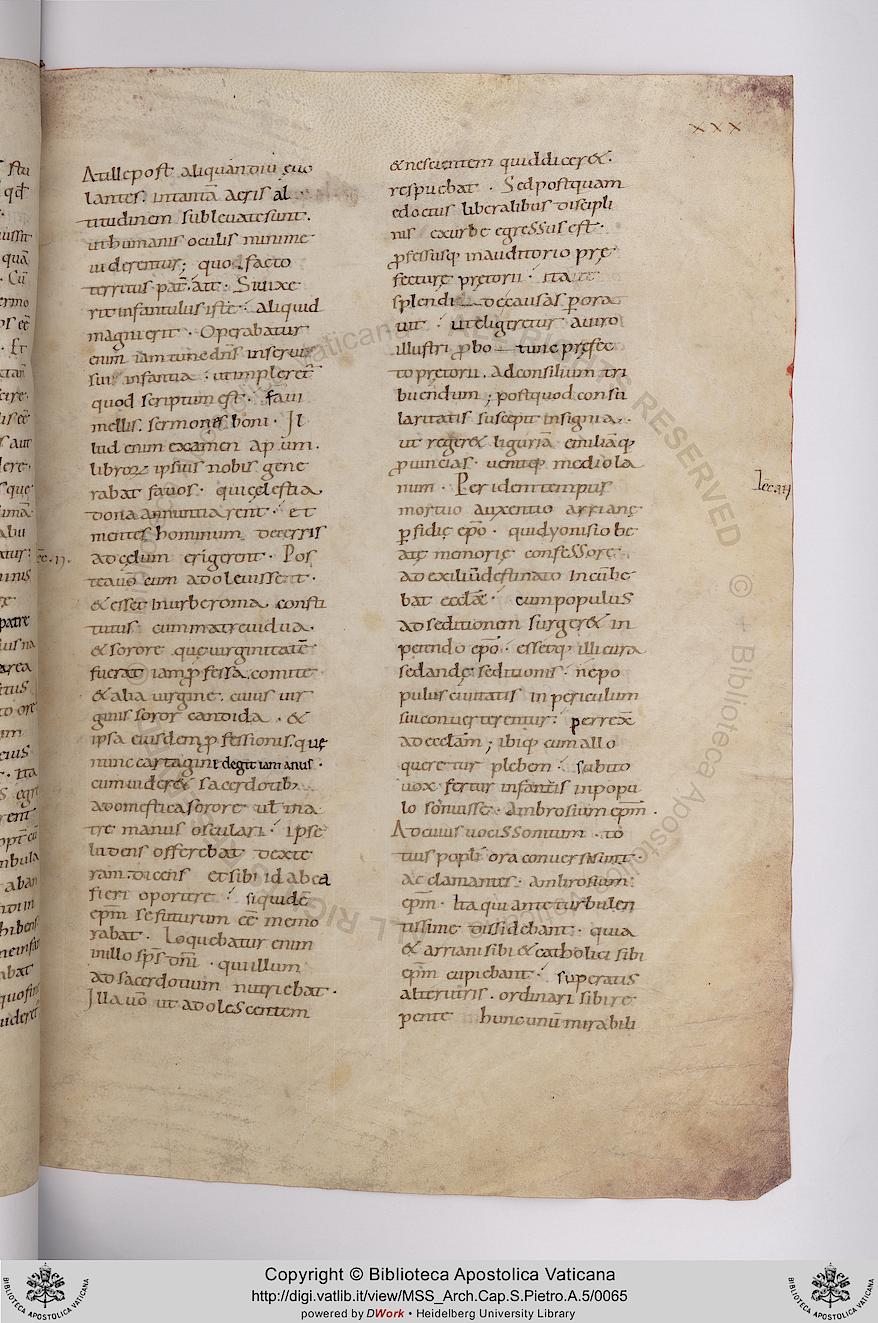 xxx
At ille post aliquandiu euo
lantes. intantā aeris al
titudinem subleuate sunt.
ut humanis oculis minime
uiderentur; quo facto
territus pat̄. ait: Si uixe
rit infantulus iste: aliquid
magni erit. Operabatur
enim iam tunc dn̄s in serui
sui infantia: ut impleret̄
quod scriptum est. faui
mellis. sermones boni. Il
lud enim examen apium.
libroꝝ ipsius nobis gene
rabat fauos. qui cęlestia
dona annuntiarent. et
mentes hominum deterris
ad cęlum erigerent. Pos
tea uō cum adoleuisset.
& esset in urbe roma. consti
tutus cum matre uidua.
& sorore que uirginitatē
fuerat iam ꝓfessa. comite
& alia uirgine. cuius uir
ginis soror candida. &
ipsa eiusdem ꝓfessionis. quę
nunc cartagini degit iam anus.
cum uider& sacerdotib;
a domestica sorore ut̄ ma
tre manus osculari: ipse
ludens offerebat dexte
ram. dicens et sibi id ab ea
fieri oportere: siquidē
ep̄m se futurum eē memo
rabat. Loquebatur enim
in illo sp̄s dn̄i. qui illum
ad sacerdotium nutriebat.
Illa uō ut adolescentem
& nescientem quid dicer&.
respuebat. Sed postquam
edoctus liberalibus discipli
nis ex urbe egressus est.
ꝓfessusq; in auditorio prę
fecturę pretorii. ita
splendide causas ꝑora
uit: ut eligeretur a uiro
illustri ꝓbo tunc pręfec
to pretorii. Ad consilium tri
buendum; post quod consu
laritatis suscepit insignia.
ut reger& liguriā emiliāq;
ꝓuincias. uenitq; mediola
num. Per idem tempus
mortuo auxentio arrianę
ꝑfidię ep̄o. qui dyonisio be
atę memorię confessore
ad exiliū destinato incūbe
bat ecclę. cum populus
ad seditionem surger& in
petendo ep̄o. essetq; illi cura
sedandę seditionis. ne po
pulus ciuitatis in periculum
sui conuerterentur: perrex̄
ad ecclam; ibiq; cum allo
queretur plebem: subito
uox fertur infantis in popu
lo sonuisse. Ambrosium ep̄m.
Ad cuius uocis sonitum. to
tius popl̄i ora conuersi sunt.
acclamantes. ambrosium
ep̄m. Ita qui ante turbulen
tissime dissidebant. quia
& arriani sibi & catholici sibi
ep̄m cupiebant. superatis
alterutris. ordinari sibi re
pente hunc unū mirabili
Copyright © Biblioteca Apostolica Vaticana
http://digi.vatlib.it/view/MSS_Arch.Cap.S.Pietro.A.5/0065
powered by DWork • Heidelberg University Library